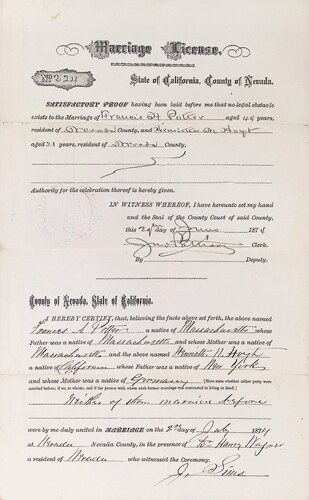 Marriage License.
No 224
State of California, County of Nevada.
SATISFACTORY PROOF having been laid before me that no legal obstacle
exists to the Marriage of Francis A Potter aged 44 years,
resident of Nevada County, and
aged 21 years, resident of Nevada County,
Authority for the celebration thereof is hereby given.
IN WITNESS WHEREOF, I have hereunto set my hand
and the Seal of the County Court of said County,
this 29th day of June 1874
Jno Pattison Clerk.
By Deputy.
County of Nevada, State of California.
I HEREBY CERTIFY, that, believing the facts above set forth, the above named
Francis A Potter a native of Massachusetts whose
Father was a native of Massachusetts, and whose Mother was a native of
Massachusetts and the above named
a native of California whose Father was a native of New York
and whose Mother was a native of Germany
Neither of them married before
were by me duly united in MARRIAGE on the 2nd day of July 1874
at Nevada Nevada County, in the presence of Henry Wagner
a resident of Nevada who witnessed the Ceremony.
Sims